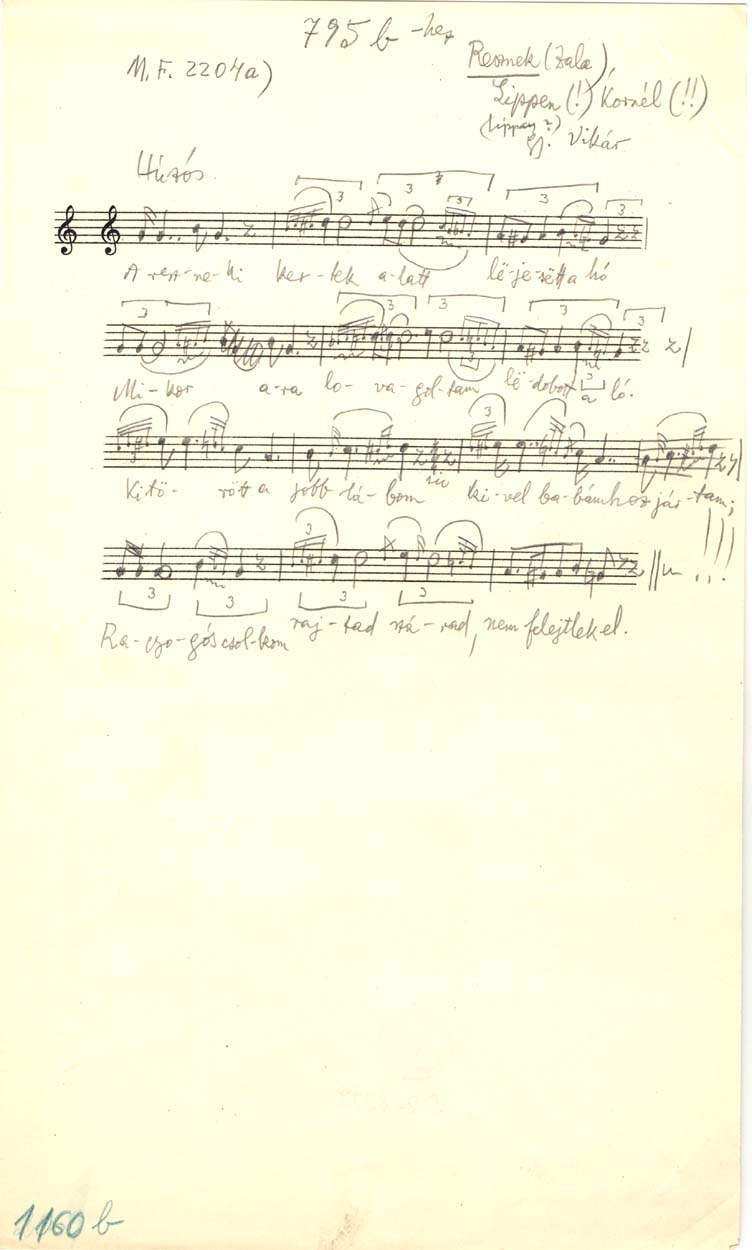 795 b -hez
M.F. 2204a)
Resznek (Zala),
Lippen (!) Kornél (!!)
(Lippay?)
gy. Vikár
3 3 3 3 3
A resz-ne-ki ker-tek a-latt lë-je-sëtt a hó
3 3 3 3 3
Mi-kor a-ra lo-va-gol-tam lë-dobott a ló.
3
3 3
Ki tö-rött a jobb lá-bom sic ki-vel ba-bámhoz jár-tam;
3
3 3 3 3
Ra-gyo-gós csol-kom raj-tad szá-rad, nem felejtlek el.
1160 b